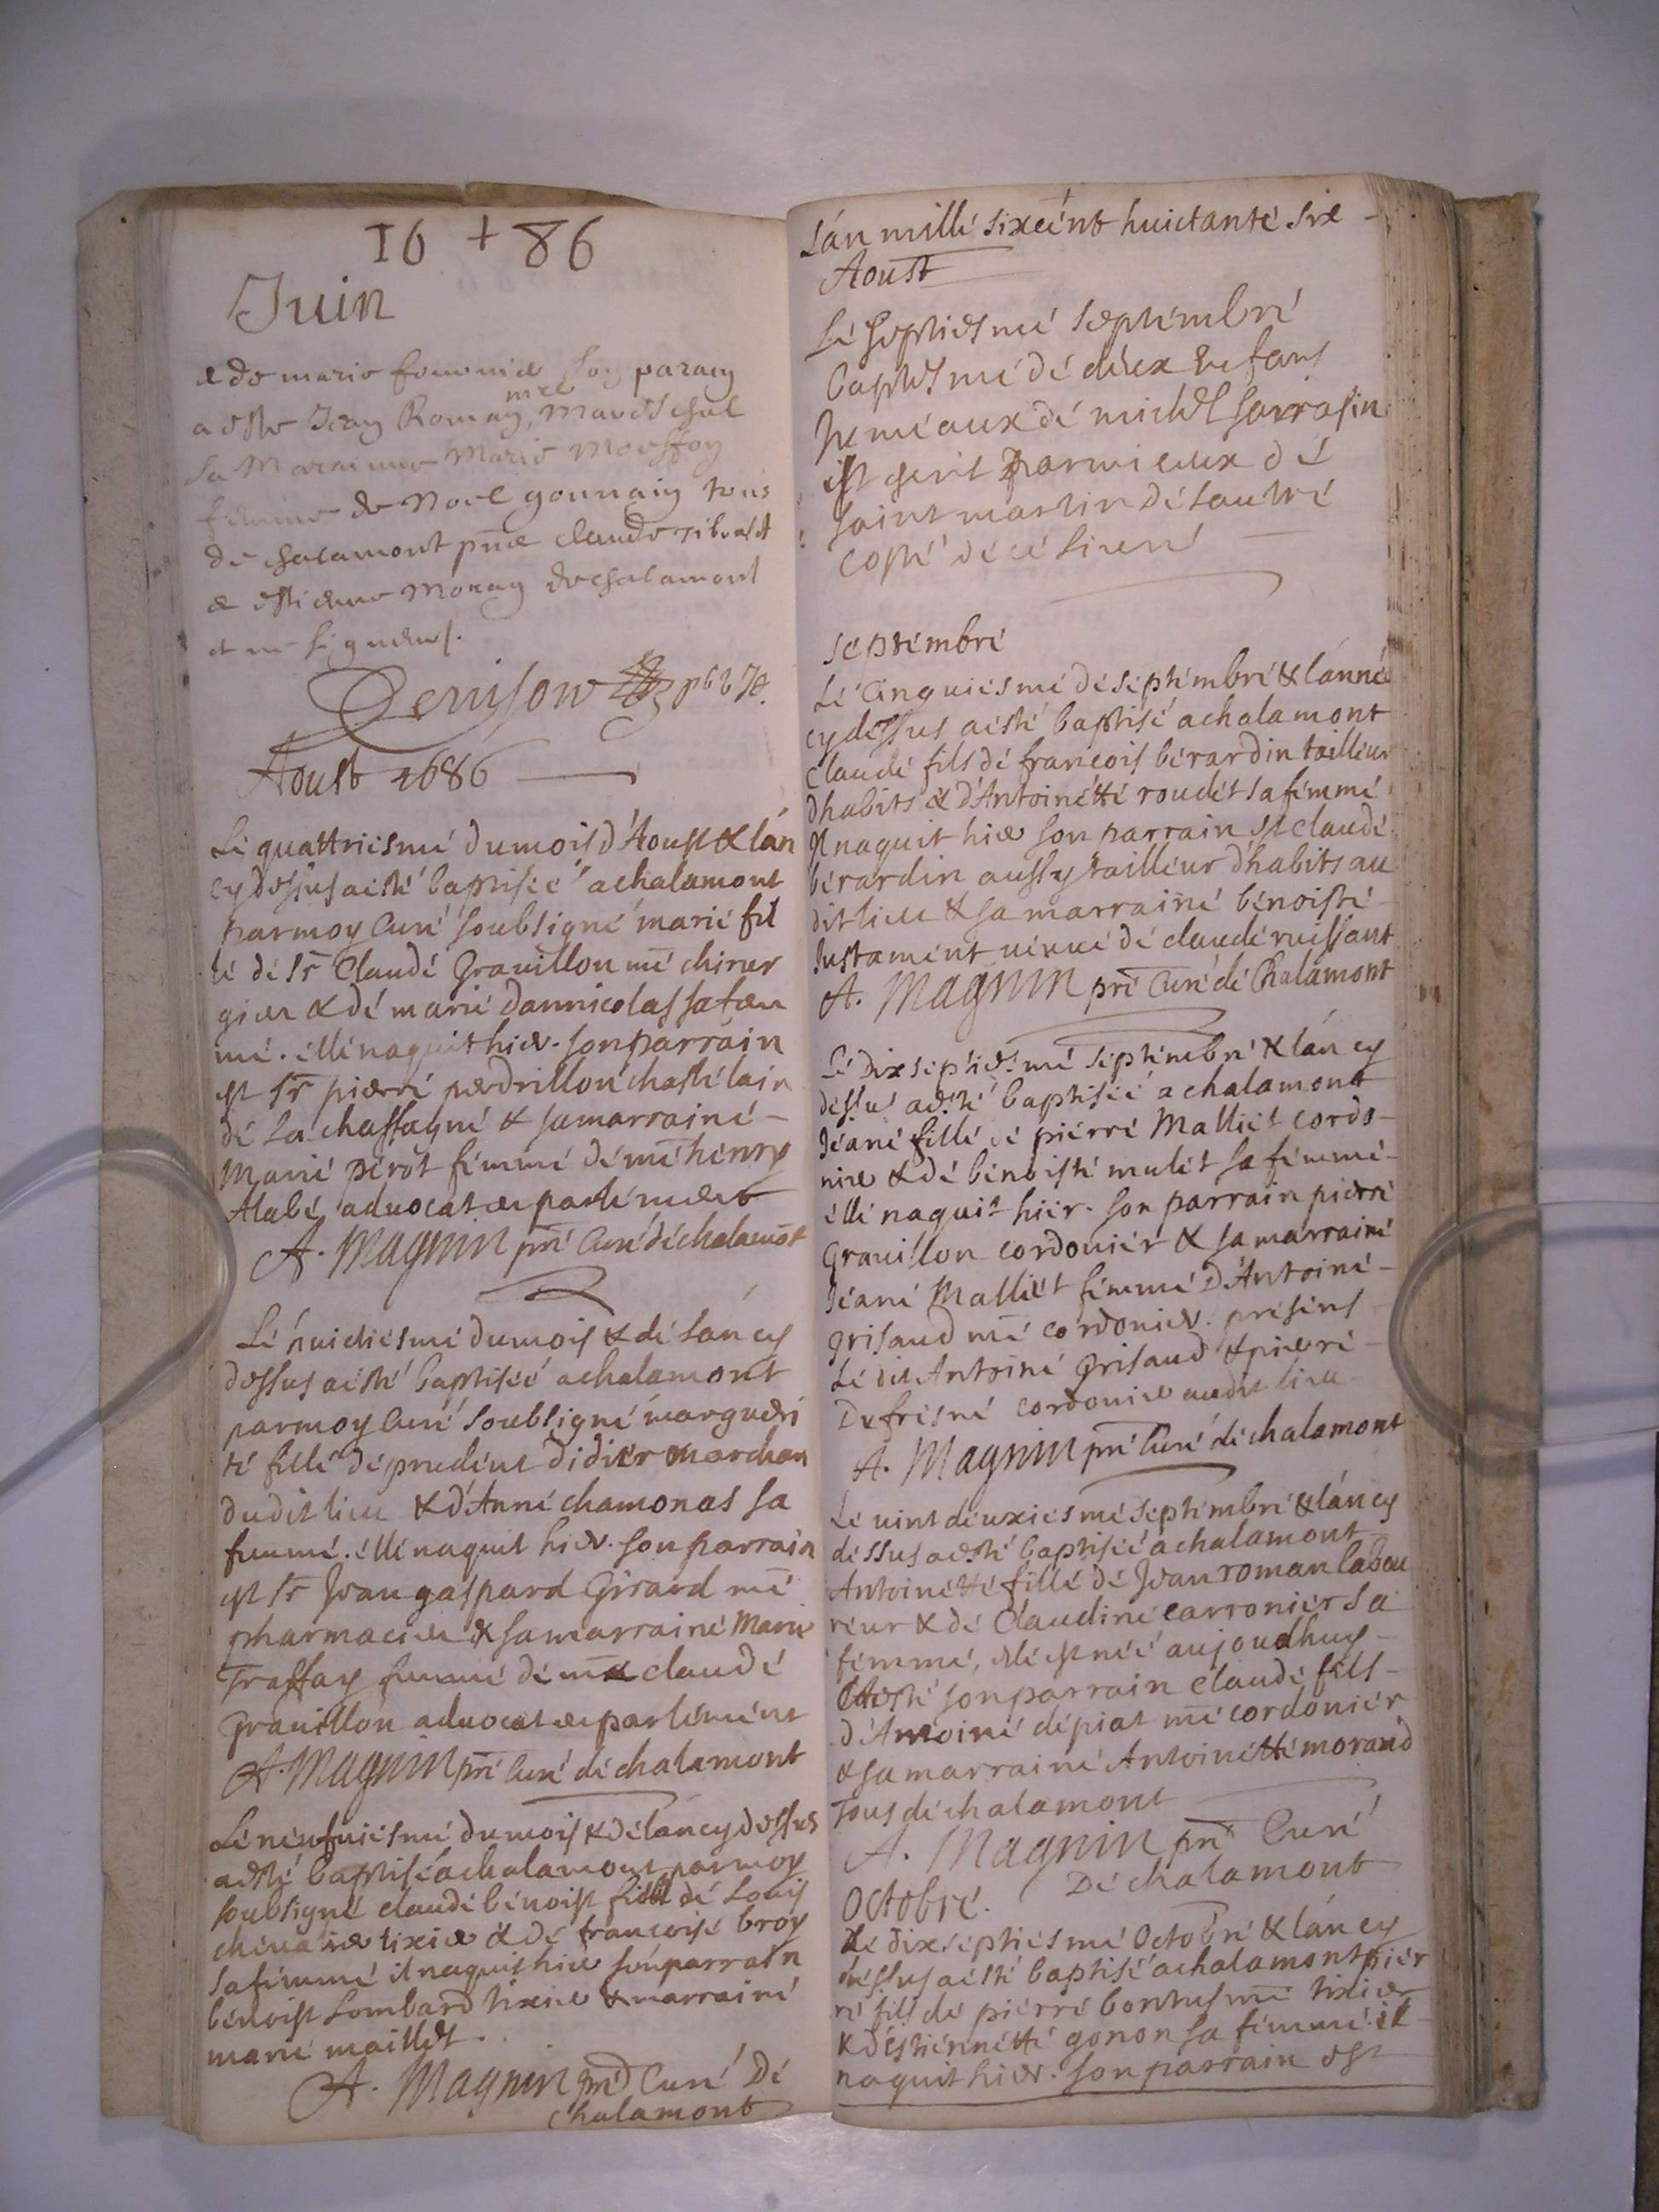 16 + 86
Juin
a esté Jean Romain, mre Mareschal
sa Maraine Marie
femme de Noel gonnain tous
de chalamont pñt claude ribout
& estienne Moray de chalamont
Denison
Aoust 1686
Lé quattriésmé du mois d'Aoust & lán
cydessus aésté baptiséé achalamont
parmoy Curé soubsigné marié fil
lé dé Sr Claudé Grauillon mé chirur
gien & dé marié dannicolas safem
mé. éllé naquit hier. son parrain
est Sr pierré perdrillon chastélain
dé La chassagné & samarrainé -
Marié pérot fémmé dé mé hénry
Alabé, aduocat en parlément
A. Magnin pré Curé déchalamõt
Lé huictiésmé dumois & dé lán cy
dessus aésté baptiséé achalamont
parmoy Curé soubsigné marguéri
té fillé dé prudént didiér marchan
dudit lieu & d'Anné chamonas sa
fémmé. éllé naquit hier. son parrain
est Sr Jean gaspard Girard mé
pharmacien & samarrainé Marie
Traffay fémmé dé mé claudé
Grauillon aduocat en parlémént
A. Magnin pré Curé dé chalamont
Lé neufuiésmé dumois & dé lán cydessus
aesté baptisé achalamont parmoy
soubsigné claudé bénoist fils dé Louis
tixier & dé francoisé broy
safémmé il naquit hier son parrain
bénoist Lombard tixier & marrainé
marié maillet.
A. Magnin pré Curé Dé
chalamont
Lán millé sixcént huictanté six -
Aoust
Lé septiésmé séptémbré
baptésmé dé déux Enfans
Juméaux dé michel sarrasin
est escrit parmi ceux dé
saint martin dé Lautré
costé dé cé Liuré
séptémbré
Lé Cinquiésmé dé séptémbré & lánnéé
cydessus aésté baptisé achalamont
Claudé fils dé francois bérardin tailléur
dhabits & d'Antoinétté roudét sa fémmé
Il naquit hier son parrain est claudé
bérardin aussy tailleur d'habits au
dit lieu & sa marrainé bénoisté
Justamént uéuué dé claudé ruissant
A. Magnin pré Curé dé Chalamont
Lé Dixséptiésmé séptémbré & lán cy
déssu aésté baptiséé a chalamont
Jéané fillé dé piérré Malliét cordo-
nier & dé bénoisté mulét sa fémmé-
éllé naquit hier. son parrain pierré
Grauillon cordoniér & sa marrainé
Jéané Malliét fémmé D'Antoiné-
grisaud mé cordonier. présens
Lé dit Antoiné Grisaud & pierré-
Dufrésné cordonier audit lieu
A. Magnin pré Curé dé chalamont
Lé uint déuxiésmé séptémbré & lán cy
déssus aésté baptiséé a chalamont
Antoinétté fillé dé Jean roman labou
réur & dé Claudiné carroniér sa
fémmé, éllé est néé aujoudhuy-
son parrain claudé fils-
d'Antoiné dépiat mé cordoniér
& sa marrainé Antoinétté morand
Tous dé chalamont
A. Magnin pré Curé
Dé chalamont
Octobré.
Lé dixséptiésmé Octobré & lán cy
déssus aésté baptisé achalamont piér
ré fils dé piérré bontus mé tixier
& d'éstiénnétté gonon sa fémmé. il
naquit hier. son parrain est